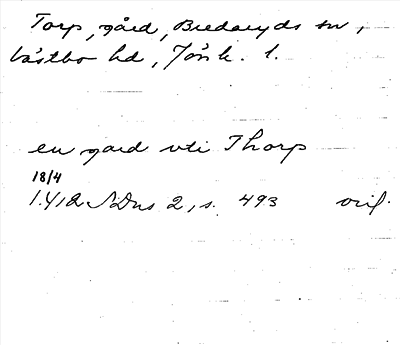 Torp, gård, Bredaryds sn,
Västbo hd, Jönk. l.
en gard vti Thorp
18/4
1412 SDns 2, s. 493 orig.